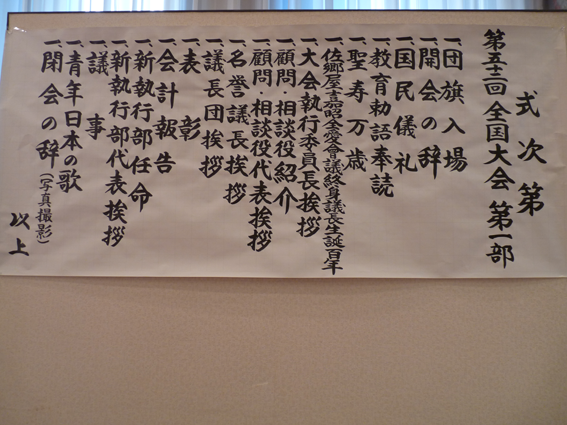 式次第
第五十二回 全国大会 第一部
一、団旗入場
一、開会の辞
一、国民儀礼
一、教育勅語奉読
一、聖寿万歳
一、佐郷屋嘉昭全愛会議終身議長生誕百年
一、大会執行委員長挨拶
一、顧問・相談役紹介
一、顧問・相談役代表挨拶
一、名誉議長挨拶
一、議長団挨拶
一、表彰
一、会計報告
一、新執行部任命
一、新執行部代表挨拶
一、議事
一、青年日本の歌
一、閉会の辞(写真撮影)
以上